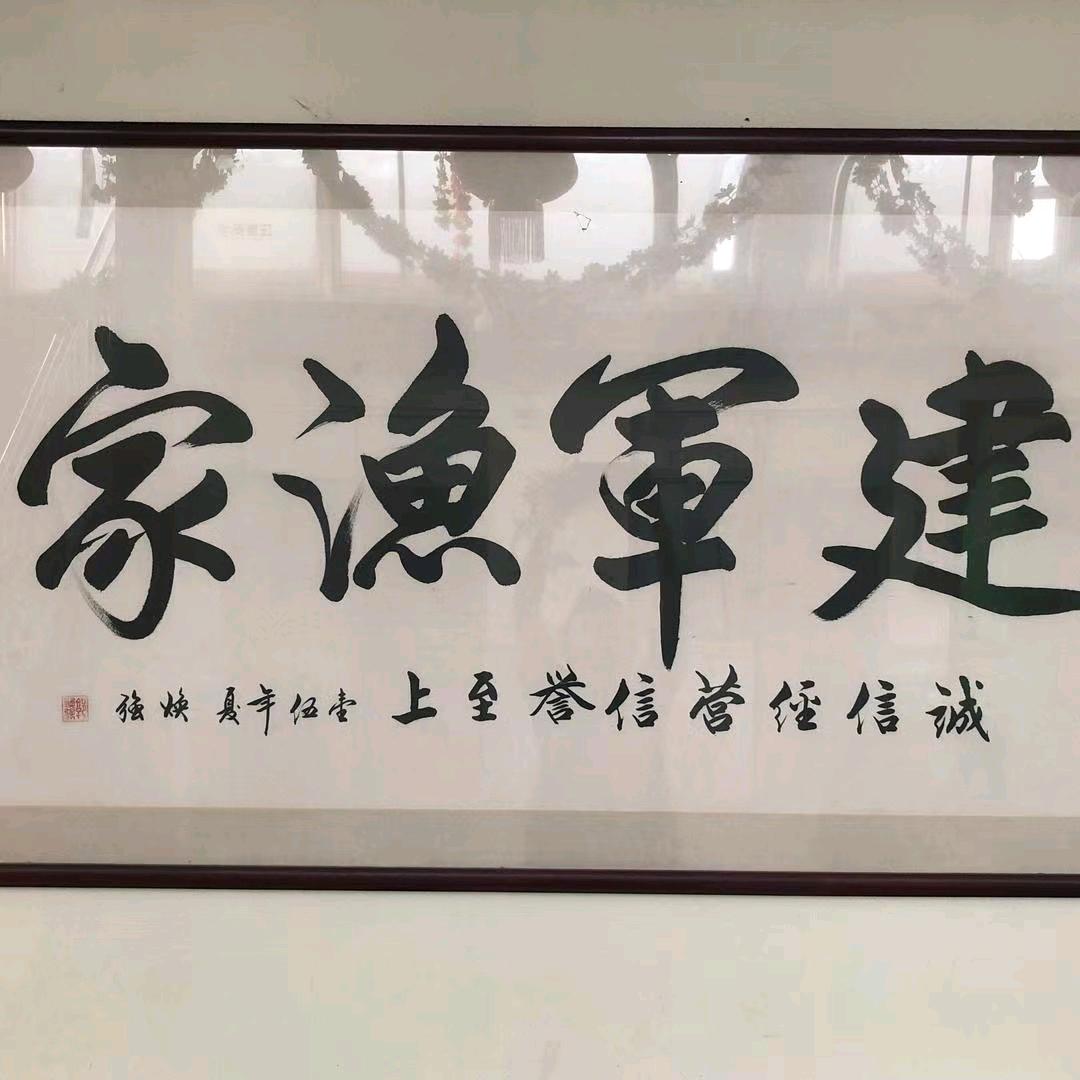 建軍漁家
誠信經營信譽至上 壹伍年夏 煥強